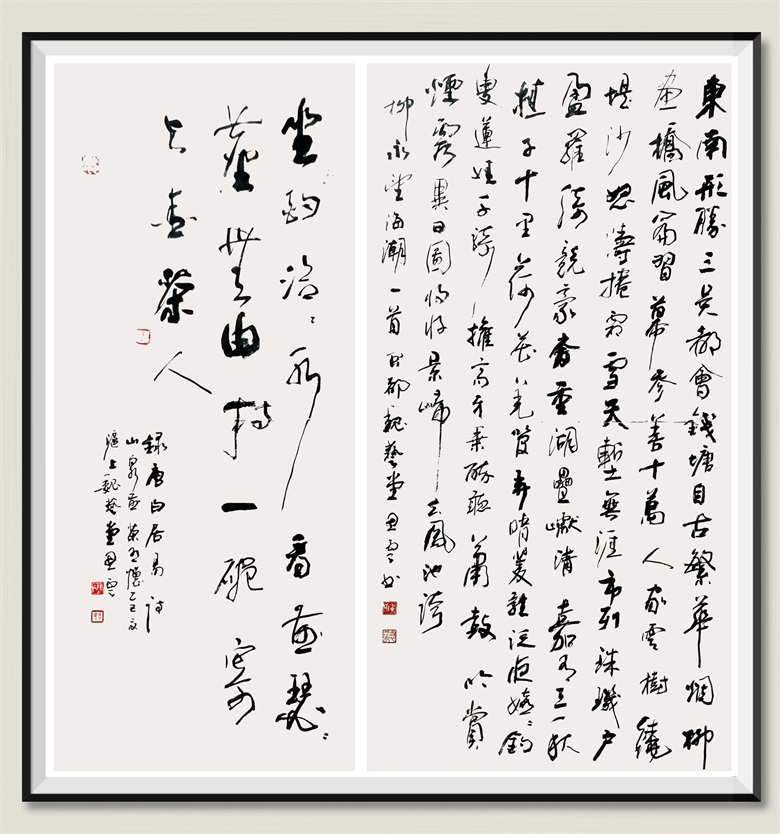 東南形勝三吳都會錢塘自古繁華烟柳
畫橋風簾翠幕參差十萬人家雲樹繞
堤沙怒濤捲霜雪天塹無涯市列珠璣戶
盈羅綺競豪奢重湖疊巘清嘉有三秋
桂子十里荷花羌管弄晴菱歌泛夜嬉〻釣
叟蓮娃千騎擁高牙乘醉聽簫鼓吟賞
煙霞異日圖將好景歸去鳳池誇
柳永望海潮一首 魏藝堂
坐酌泠〻水看煎瑟〻
塵無由持一碗寄
与愛茶人
録唐白居易詩
山泉煎茶有懷乙巳
滬上魏藝堂